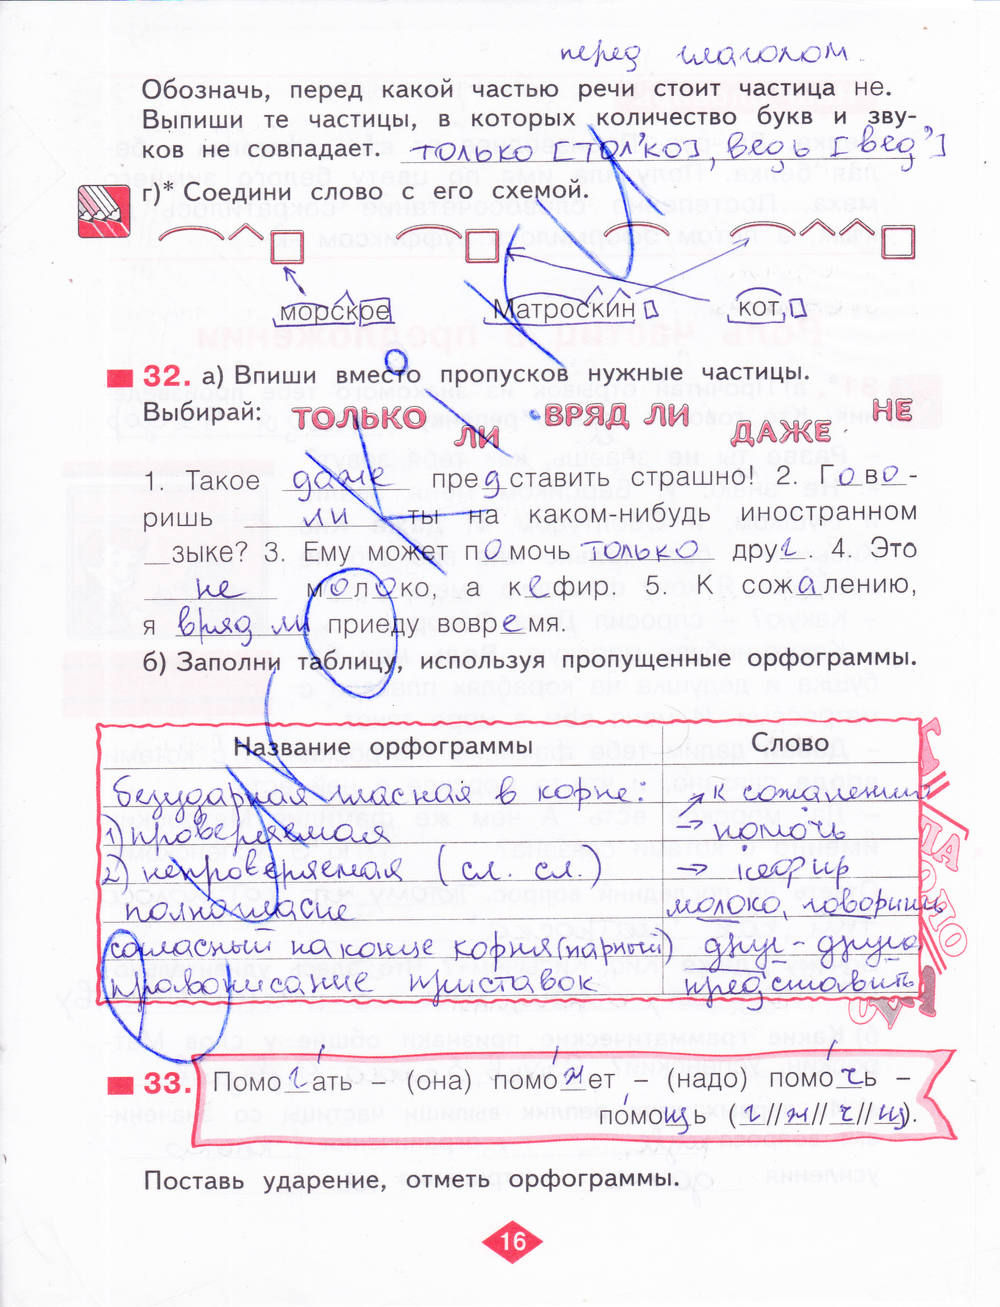 перед глаголом
Обозначь, перед какой частью речи стоит частица не.
Выпиши те частицы, в которых количество букв и зву-
ков не совпадает. только [тол'ко], ведь [вед']
г)* Соедини слово с его схемой.
морское Матроскин кот
32. а) Впиши вместо пропусков нужные частицы.
Выбирай: ТОЛЬКО ЛИ ВРЯД ЛИ ДАЖЕ НЕ
1. Такое даже представить страшно! 2. Гово-
ришь ли ты на каком-нибудь иностранном
_зыке? 3. Ему может помочь только друг. 4. Это
не молоко, а кефир. 5. К сожалению,
я вряд ли приеду вовремя.
б) Заполни таблицу, используя пропущенные орфограммы.
Название орфограммы Слово
безударная гласная в корне: к сожалению
1) проверяемая → помочь
2) непроверяемая (сл. сл.) → кефир
полногласие молоко, говоришь
согласный на конце корня (парный) друг - друга
правописание приставок представить
33. Помогать – (она) поможет – (надо) помочь –
помощь (г//ж//ч//щ).
Поставь ударение, отметь орфограммы.
16